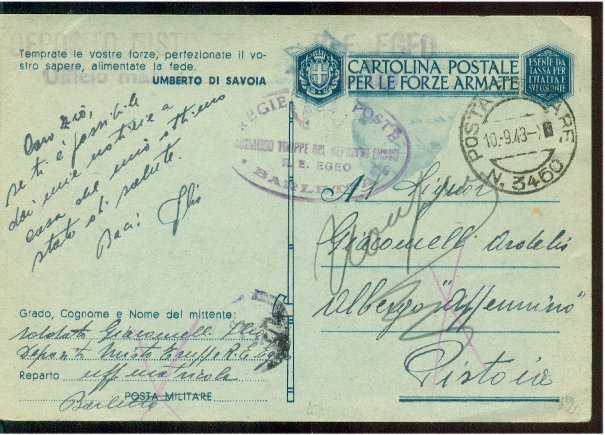 DEPOSITO MISTO EGEO
Ufficio
Temprate le vostre forze, perfezionate il vo-
stro sapere, alimentate la fede.
UMBERTO DI SAVOIA
Caro Zio,
se ti è possibile
dai mie notizie a
casa del mio ottimo
stato di salute.
Baci Elio
Grado, Cognome e Nome del mittente:
soldato Giacomelli Elio
Deposito Misto Truppe R. I.
Reparto uff matricola
Barletta
POSTA MILITARE
CARTOLINA POSTALE
PER LE FORZE ARMATE
ESENTE DA
TASSA PER
L'ITALIA E
SUE COLONIE
REGIE POSTE
COMANDO TRUPPE DEL DEPOSITO MISTO
R. I. EGEO
BARLETTA
POSTA MILITARE
10.9.43
N. 3460
Al Signor
Giacomelli
Albergo "Appennino"
Pistoia